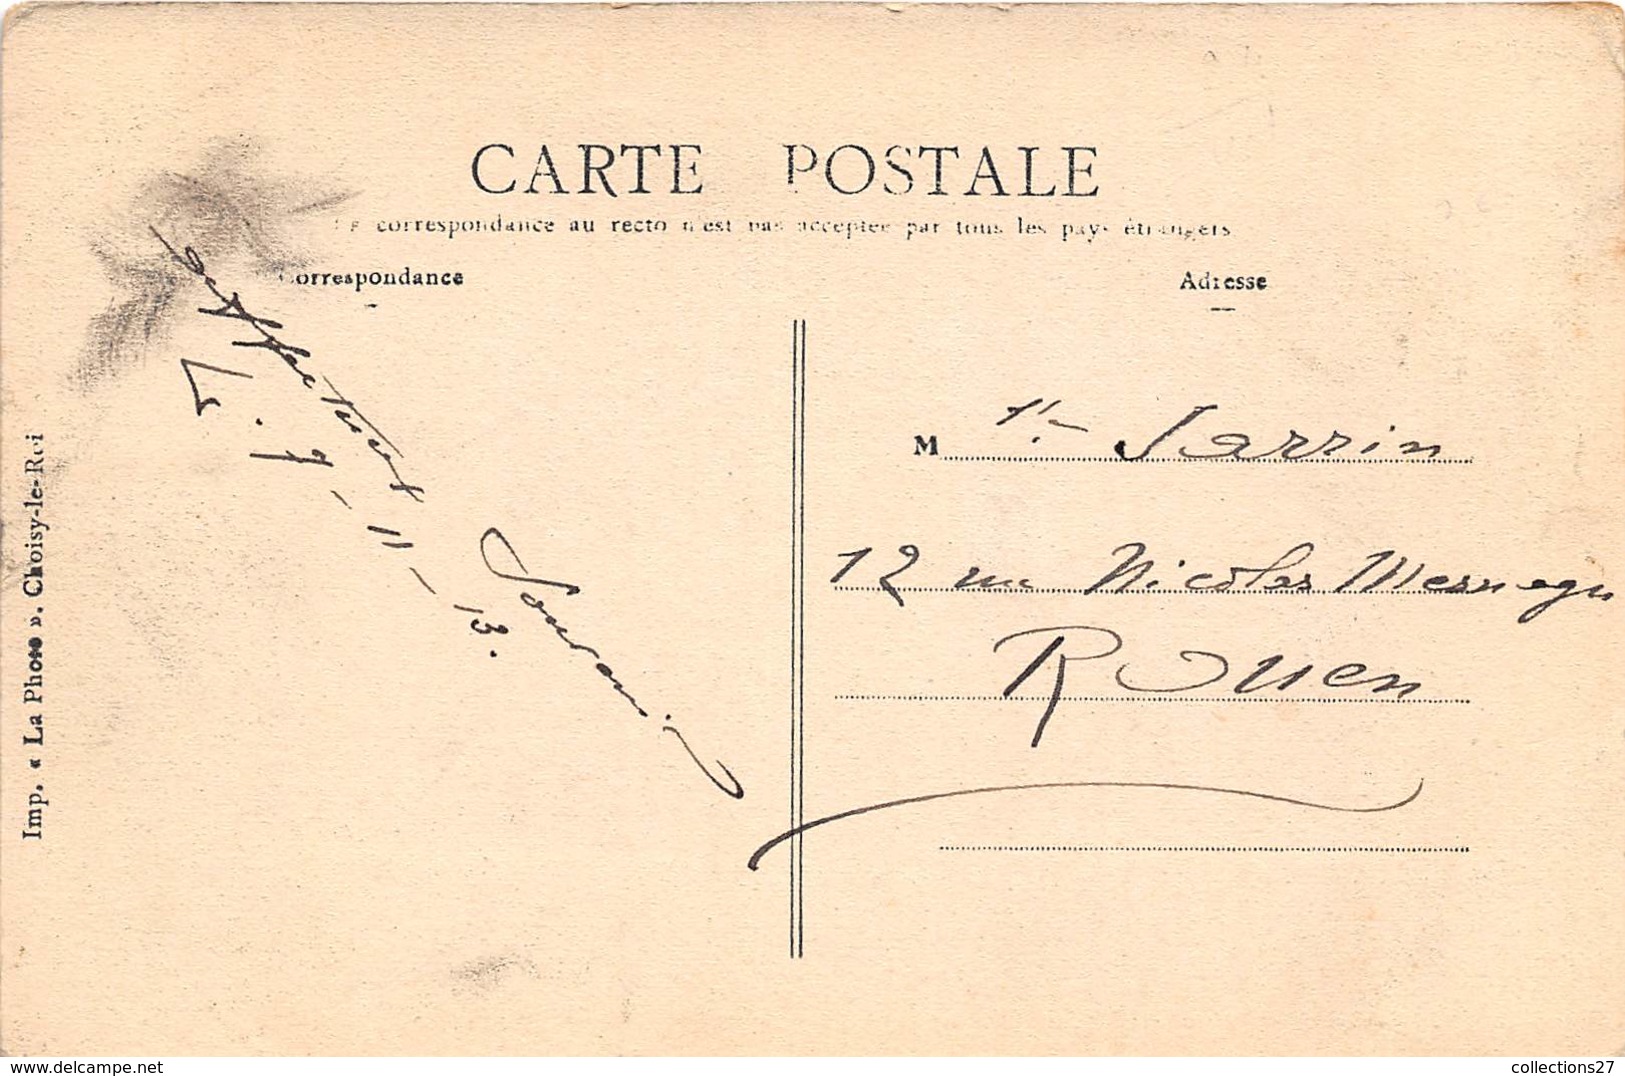 CARTE POSTALE
La correspondance au recto n'est pas acceptée par tous les pays étrangers
Correspondance
Adresse
affectueux
Souvenir
Le 7-11-13.
M lle Jarrin
12 rue Nicolas Mesnager
Rouen
Imp. « La Photo ». Choisy-le-Roi
delcampe.net
collections27